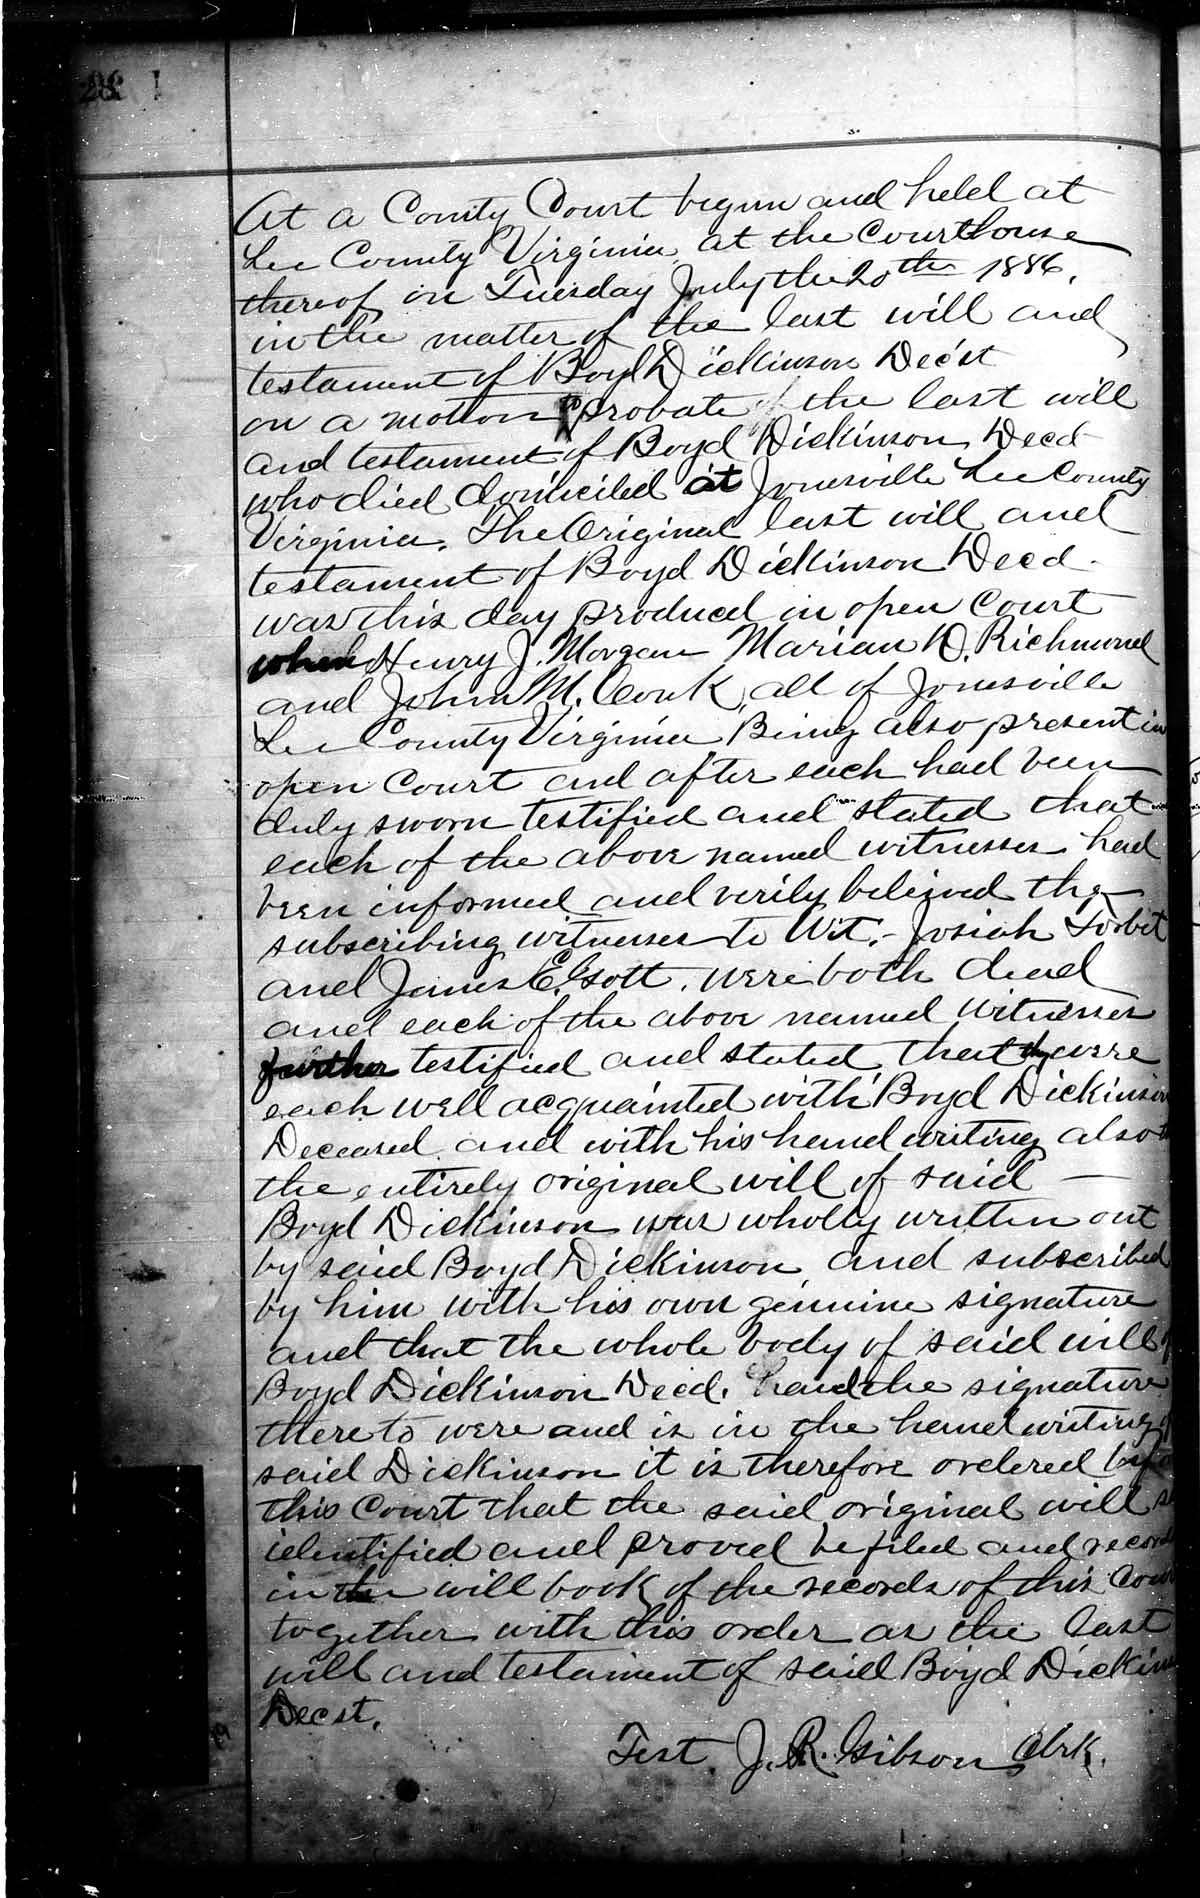 28
At a County Court begun and held at
Lee County Virginia, at the Courthouse
thereof on Tuesday July the 20th 1886,
in the matter of the last will and
testament of Boyd Dickinson Dec'st
on a motion to probate of the last will
and testament of Boyd Dickinson Decd
who died domiciled at Jonesville Lee County
Virginia. The Original last will and
testament of Boyd Dickinson Decd.
was this day produced in open Court
when Henry J. Morgan Marian D. Richmond
and John M. Couk, all of Jonesville
Lee County Virginia Being also present in
open Court and after each had been
duly sworn testified and stated that
each of the above named witnesses had
been informed and verily believed the
subscribing witnesses to Wit,- Josiah Torbit
and James Elsott, were both dead
and each of the above named witnesses
further testified and stated that they were
each well acquainted with Boyd Dickinson
Deceased, and with his hand writing also
the entirely original will of said —
Boyd Dickinson was wholly written out
by said Boyd Dickinson, and subscribed
by him with his own genuine signature
and that the whole body of said will
Boyd Dickinson Decd. and the signature
there to were and is in the hand writing of
said Dickinson it is therefore ordered
this Court that the said original will
identified and proved be filed and record
in the will book of the records of this Cour
together with this order as the last
will and testament of said Boyd Dickins
Decst.
Test. J. R. Gibson Clrk.